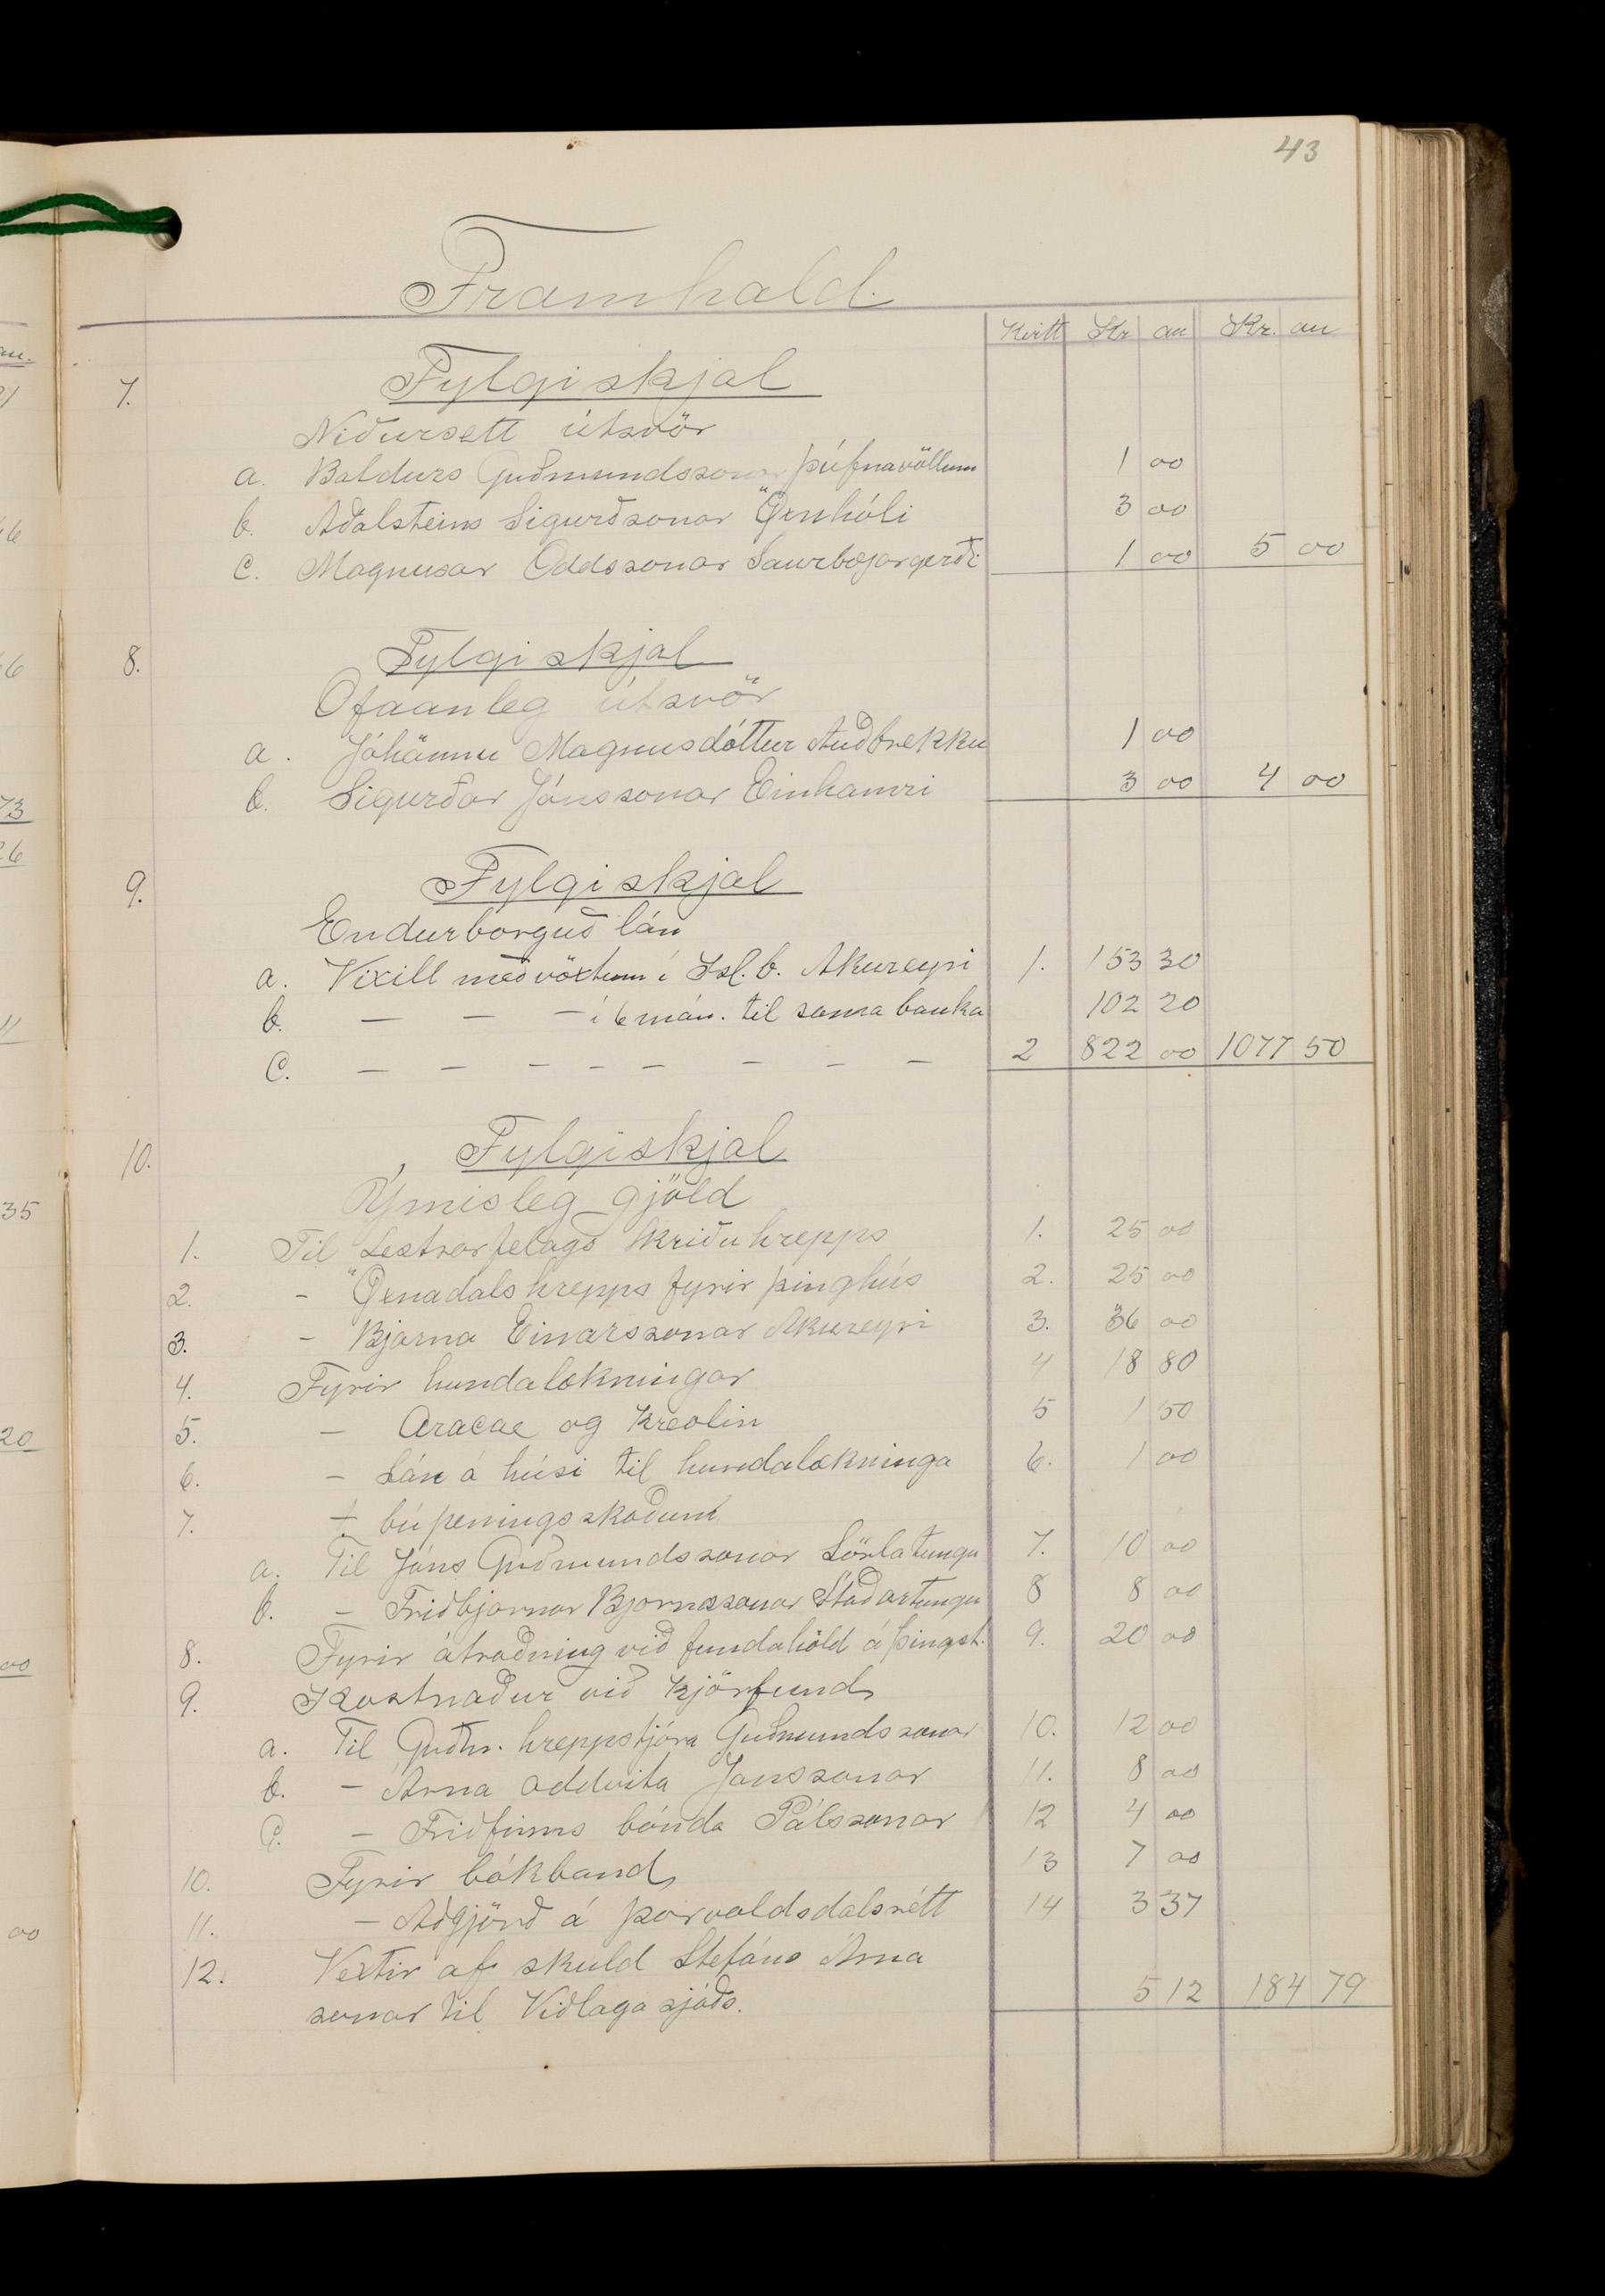 43
Framhald.
Kvitt Kr au Kr. au
7. Fylgiskjal
Niðursett útsvör
a. Baldurs Guðmundssonar Þúfnavöllum 1 00
b. Aðalsteins Sigurðsonar Öxnhóli 3 00
c. Magnusar Oddssonar Saurbæjargerði 1 00 5 00
8. Fylgiskjal
Ofáanleg útsvör
a. Jóhönnu Magnusdóttur Auðbrekku 1 00
b. Sigurðar Jónssonar Einhamri 3 00 4 00
9. Fylgiskjal
Endurborguð lán
a. Vixill með vöxtum í Isl. b. Akureyri 1. 153 30
b. — — — í 6 mán. til sama banka 102 20
C. — — — — — — — — 2 822 00 1077 50
10. Fylgiskjal
Ýmisleg gjöld
1. Til Lestrarfelags Skriðuhrepps 1. 25 00
2. - Öxnadalshrepps fyrir þinghús 2. 25 00
3. - Bjarna Einarssonar Akureyri 3. 36 00
4. Fyrir hundalækningar 4 18 80
5. — Aracae og Kreolin 5 1 50
6. - Lán á húsi til hundalækninga 6. 1 00
7. - búpeningsskoðun
a. Til Jóns Guðmundssonar Sörlatungu 7. 10 00
b. - Friðbjarnar Bjornssonar Staðartungu 8 8 00
8. Fyrir átroðning við fundahöld á þingst. 9. 20 00
9. Kostnaður við kjörfund
a. Til Guðm. hreppstjóra Guðmundssonar 10. 12 00
b. - Árna oddvita Jónssonar 11. 8 00
C. - Friðfinns bónda Pálssonar 12 4 00
10. Fyrir bókband 13 7 00
11. - Aðgjörð á Þorvaldsdalsrétt 14 3 37
12. Vextir af skuld Stefáns Árna
sonar til Viðlagasjóðs. 5 12 184 79